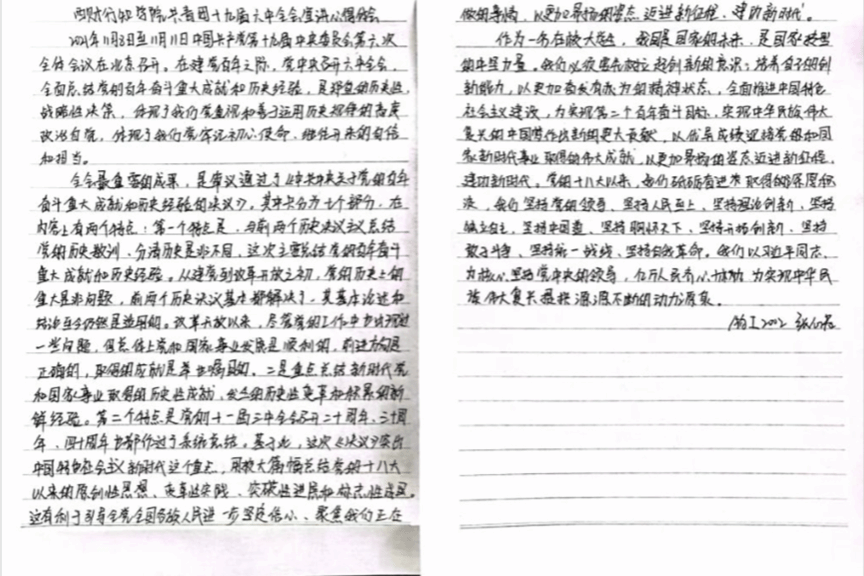 财行知学院共青团十九届六中全会宣讲心得体会
2021年11月8日至11月11日中国共产党第十九届中央委员会第六次
全体会议在北京召开。在建党百年之际,党中央召开六中全会,
全面总结党的百年奋斗重大成就和历史经验,是郑重的历史性、
战略性决策,体现了我们党重视和善于运用历史规律的高度
政治自觉,体现了我们党牢记初心使命、继往开来的自信
和担当。
全会最重要的成果,是审议通过了《中共中央关于党的百年
奋斗重大成就和历史经验的决议》。其中共分七个部分,在
内容上有两个特点:第一个特点是,与前两个历史决议主要总结
党的历史教训、分清历史是非不同,这次主要总结党的百年奋斗
重大成就和历史经验。从建党到改革开放之初,党的历史上的
重大是非问题,前两个历史决议基本都解决了,其基本论述和
结论至今仍然是适用的。改革开放以来,尽管党的工作中也出现过
一些问题,但总体上党和国家事业发展是顺利的,前进方向是
正确的,取得的成就是举世瞩目的。二是重点总结新时代党
和国家事业取得的历史性成就、发生的历史性变革和积累的新
鲜经验。第二个特点是党的十一届三中全会召开二十周年、三十周
年、四十周年也都作过了系统总结。基于此,这次《决议》突出
中国特色社会主义新时代这个重点,用较大篇幅总结党的十八大
以来的原创性思想、变革性实践、突破性进展和标志性成果。
这有利于引导全党全国各族人民进一步坚定信心、聚焦我们正在
做的事情,以更加昂扬的姿态迈进新征程、建功新时代。
作为一名在校大学生,我国是国家的未来,是国家转型
的中坚力量。我们必须牢固树立起创新的意识,培养自己的创
新能力,以更加奋发有为的精神状态,全面推进中国特色
社会主义建设,为实现第二个百年奋斗目标、实现中华民族伟大
复兴的中国梦作出新的更大贡献,以优异成绩迎接党和国
家新时代事业取得的伟大成就,以更加昂扬的姿态迈进新征程、
建功新时代。党的十八大以来,我们砥砺奋进
我们坚持党的领导、坚持人民至上、坚持理论创新、坚持
独立自主、坚持中国道、坚持胸怀天下、坚持开拓创新、坚持
敢于斗争、坚持统一战线、坚持自我革命。我们以习近平同志
为核心,坚持党中央的领导,亿万人民齐心协力,为实现中华民
族伟大复兴提供源源不断的动力源泉。
2002